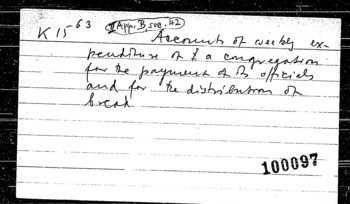 K 15 63 II App. B sec. 42
Accounts of weekly ex-
penditure of a congregation
for the payment of its officials
and for the distribution of
bread.
100097